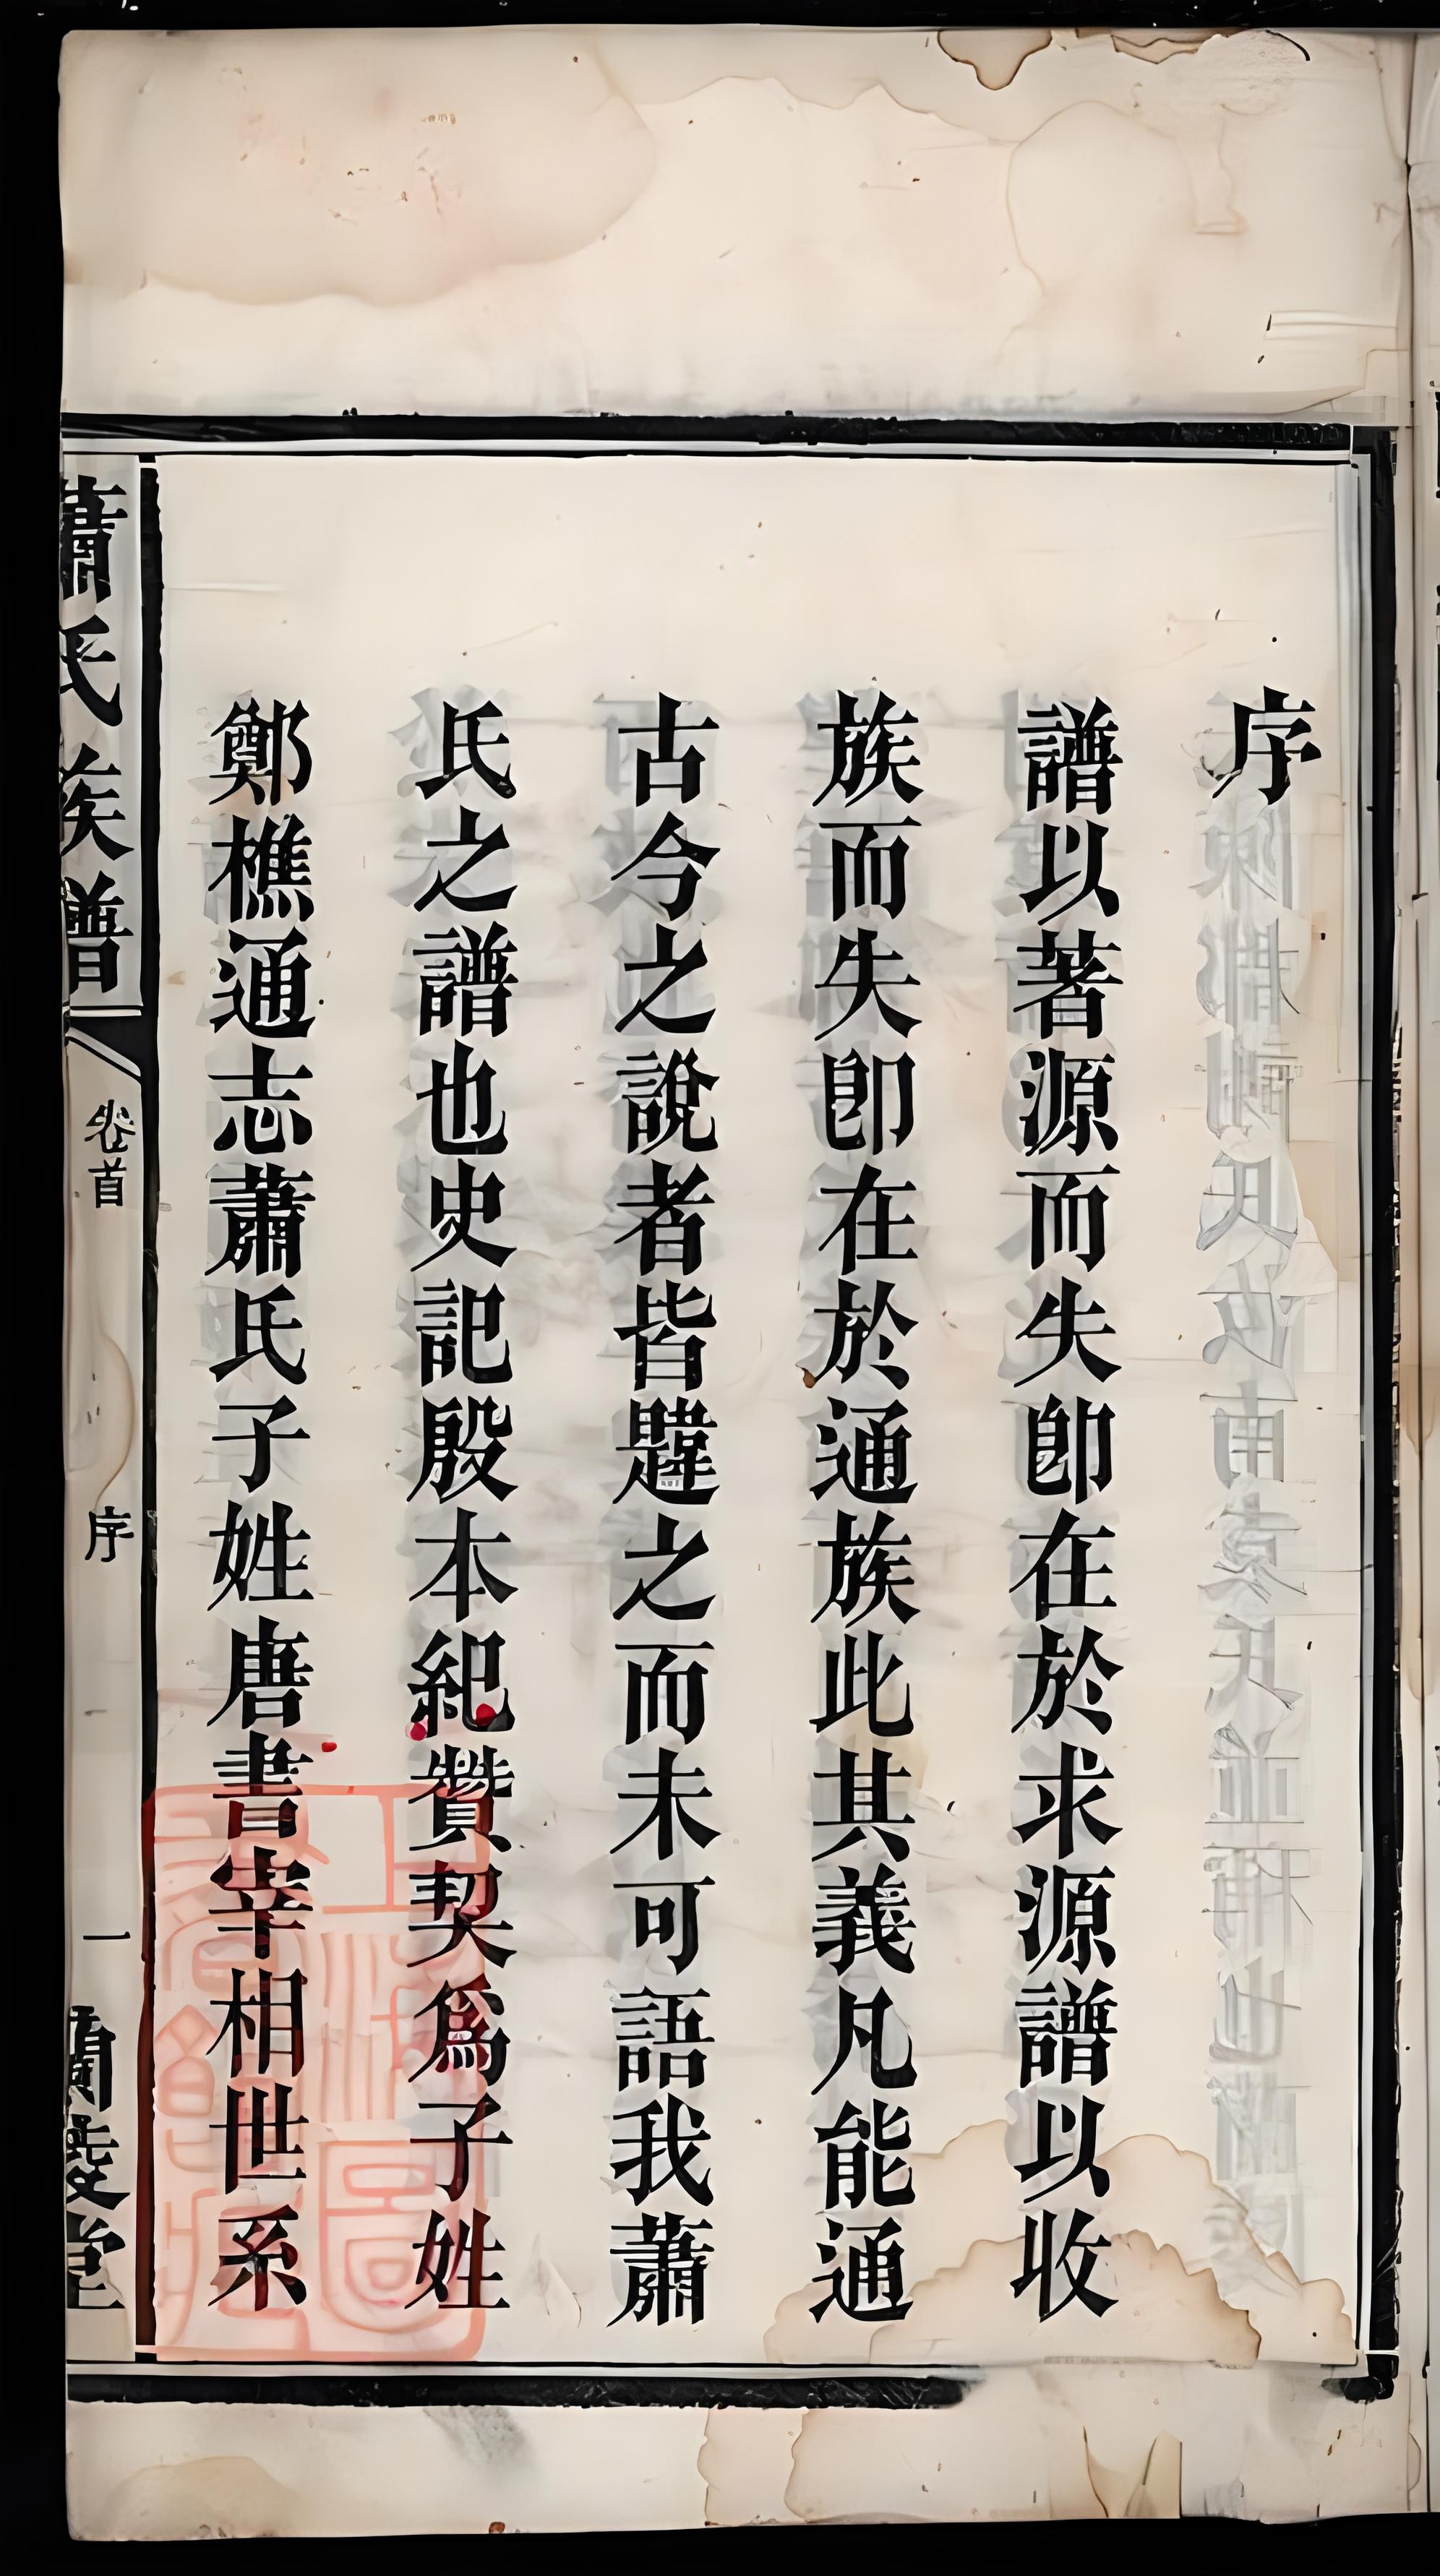 序
譜以著源而失卽在於求源譜以收
族而失卽在於通族此其義凡能通
古今之說者皆韙之而未可語我蕭
氏之譜也史記殷本紀贊契爲子姓
鄭樵通志蕭氏子姓唐書宰相世系
蕭氏族譜
卷首
序
一
蘭陵堂